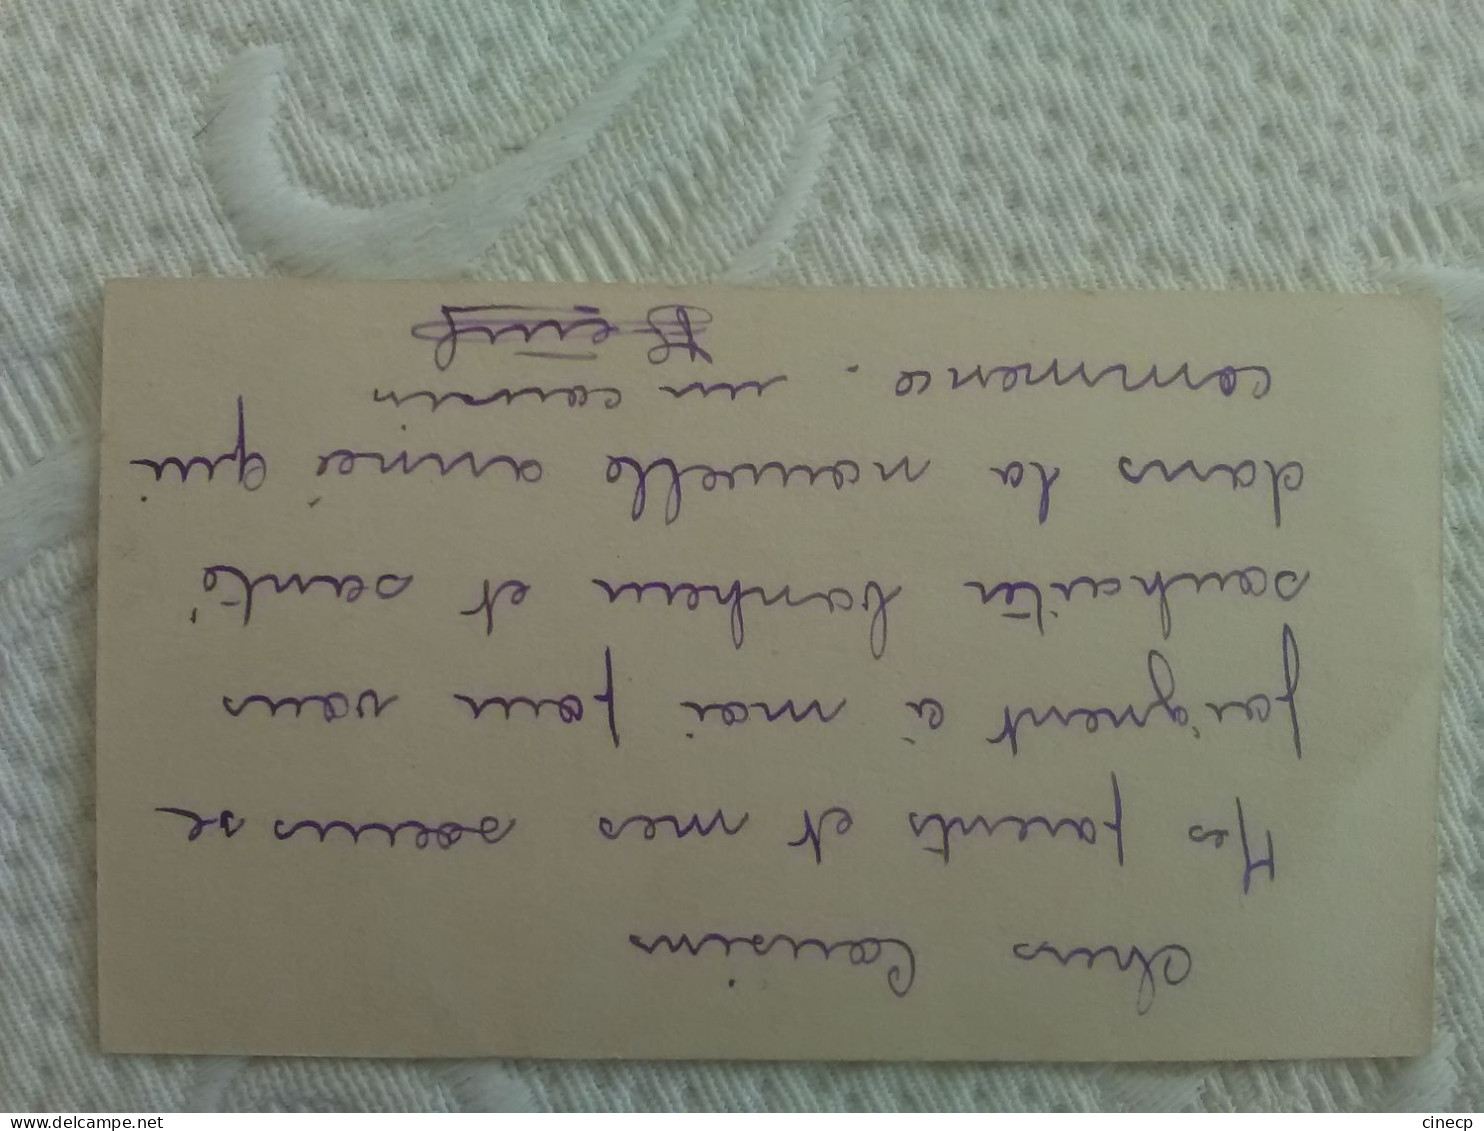 chers Cousins
Mes parents et mes soeurs se
joignent à moi pour vous
souhaiter bonheur et santé
dans la nouvelle année qui
commence. un cousin
delcampe.com
cinecp